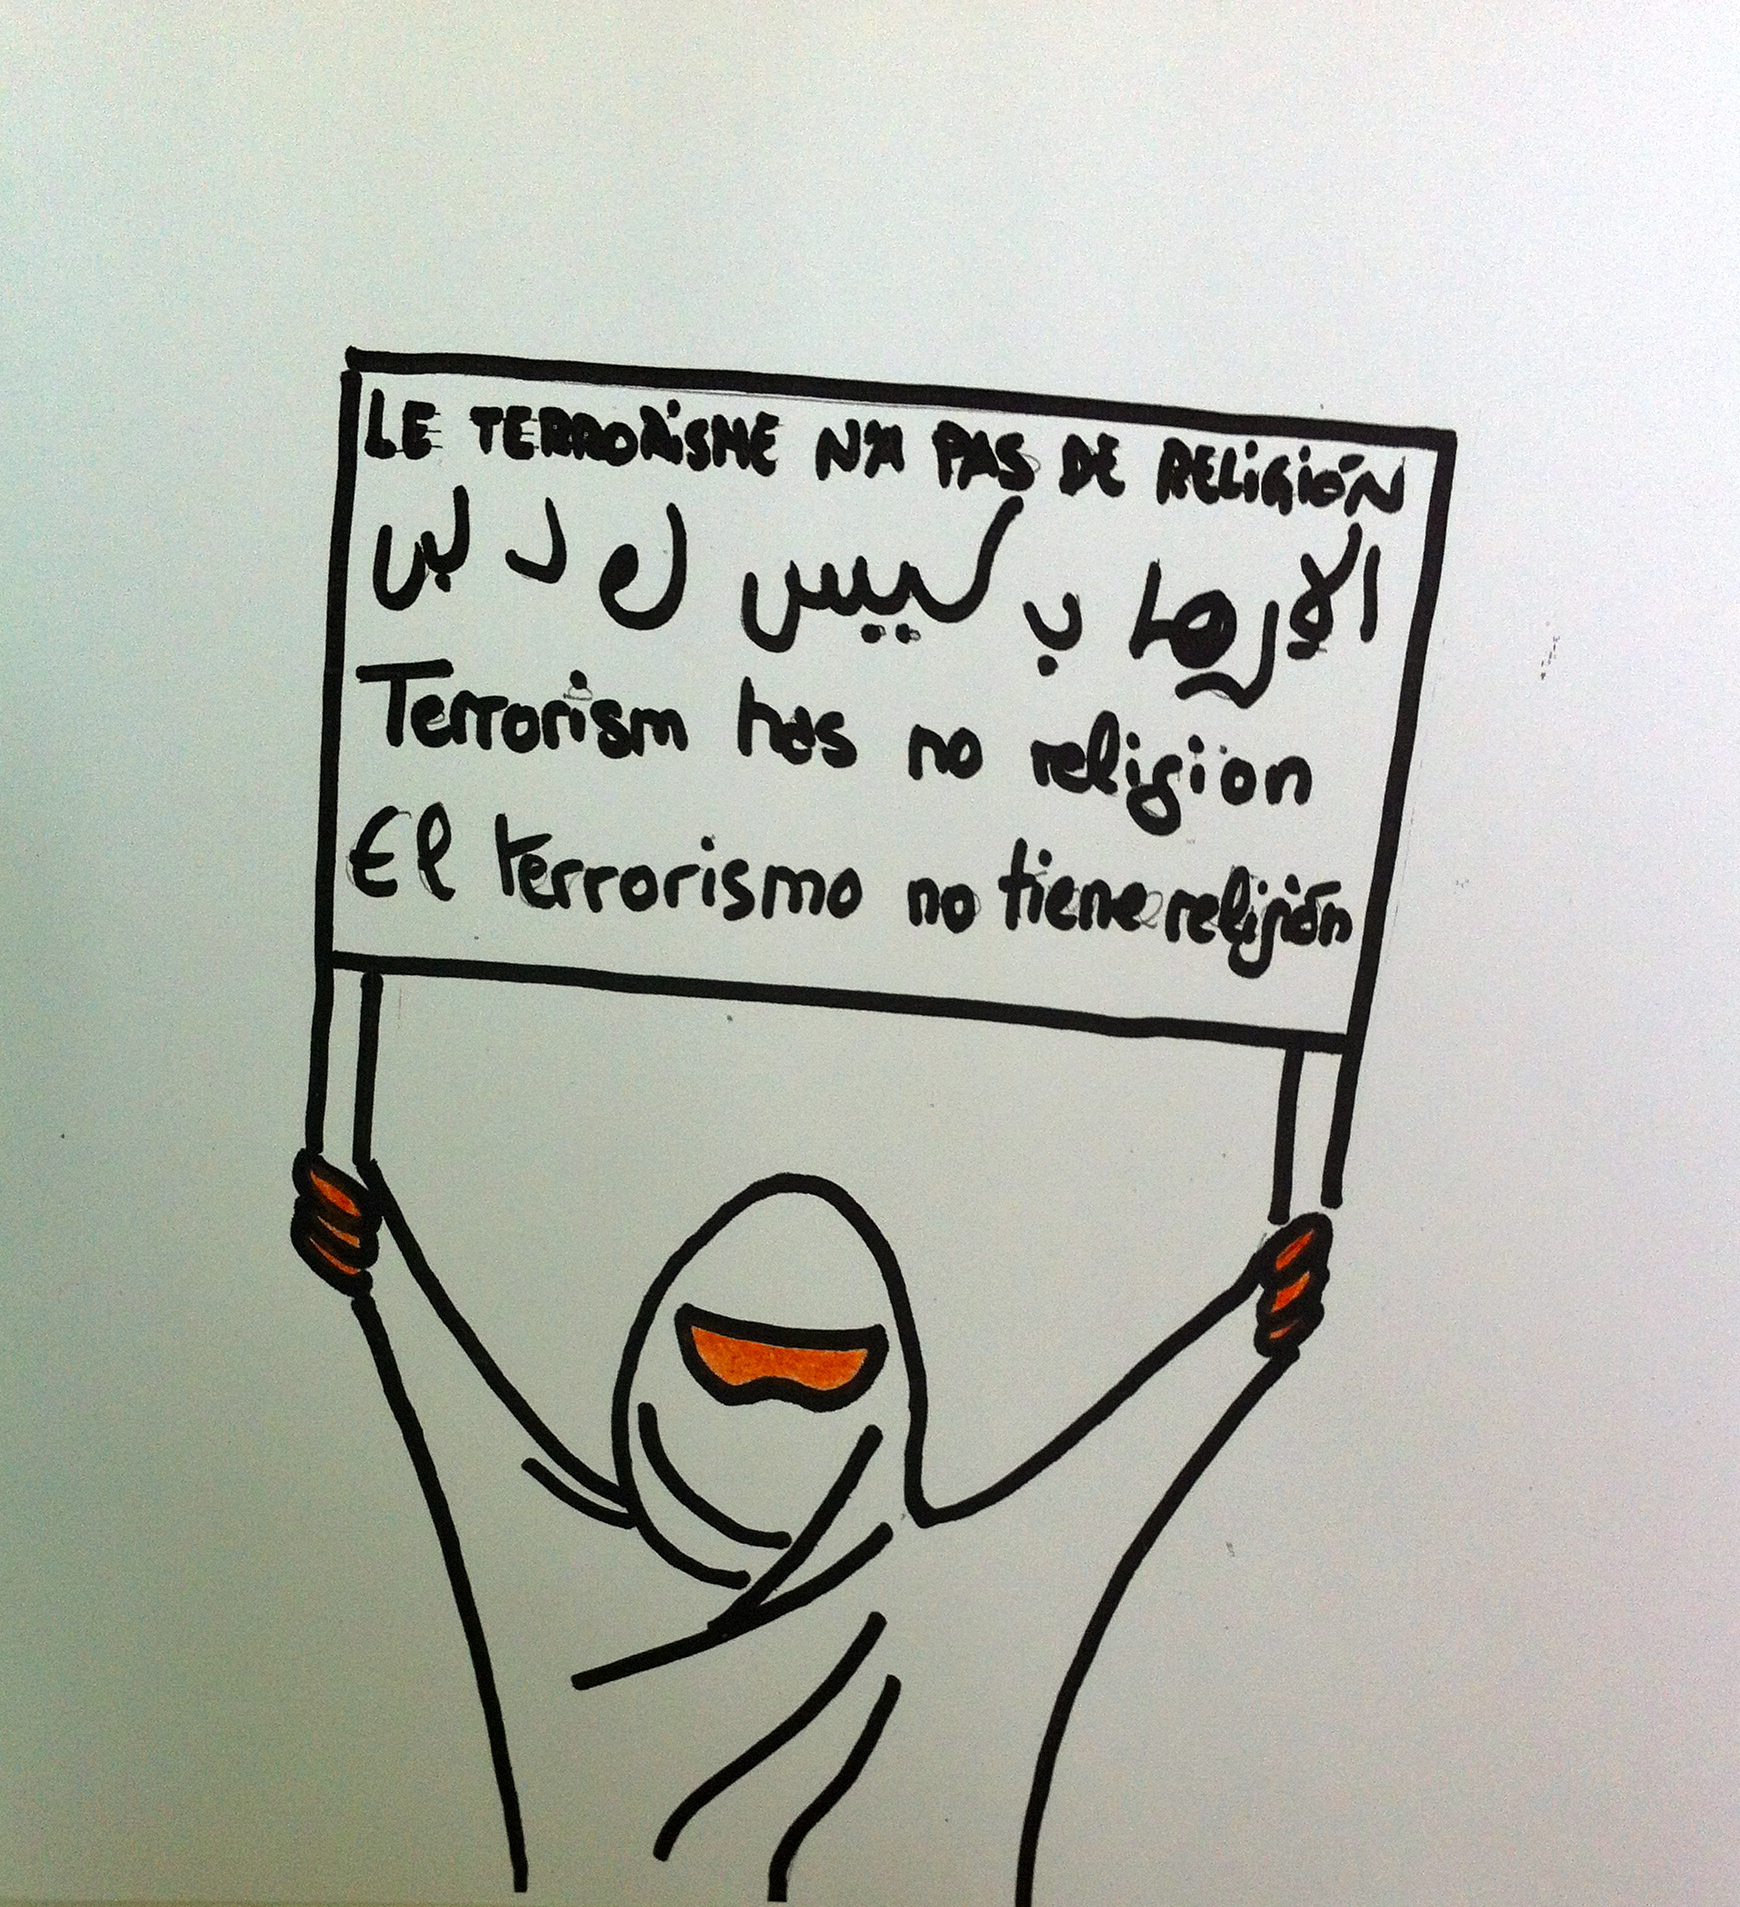 LE TERRORiSME N'A PAS DE RELiGiÓN
الإرهاب ليس
Terrorism has no religion
El terrorismo no tiene religión